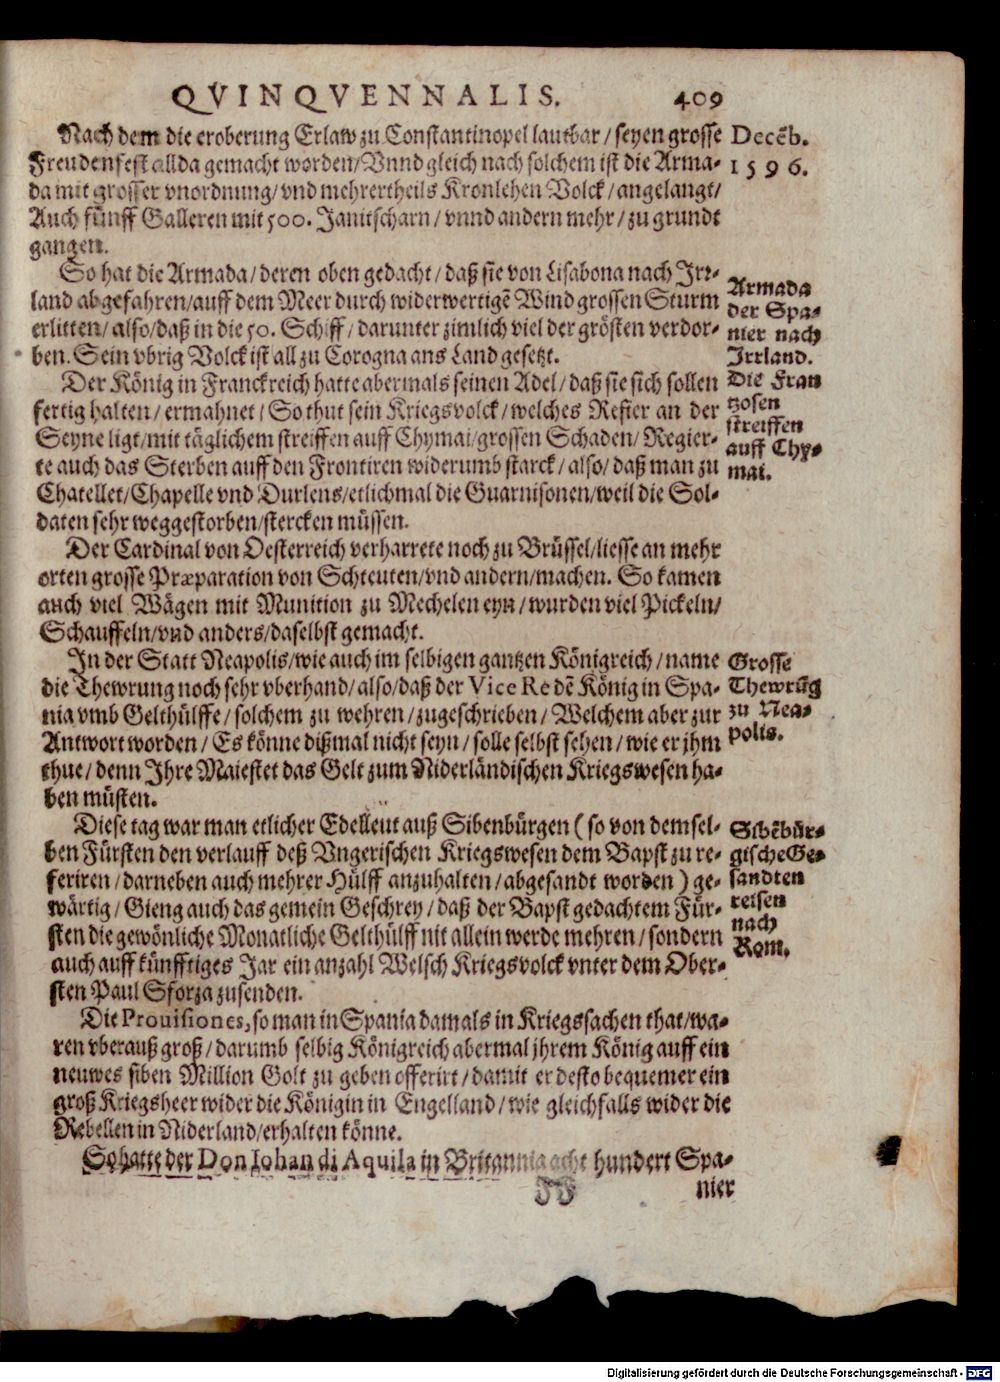 QVINQVENNALIS. 409
Nach dem die eroberung Erlaw zu Constantinopel lautbar / seyen grosse
Freudenfest allda gemacht worden / Vnnd gleich nach solchem ist die Arma-
da mit grosser vnordnung / vnd mehrertheils Kronlehen Volck / angelangt /
Auch fünff Galleren mit 500. Janitscharn / vnnd andern mehr / zu grundt
gangen.
Decēb.
1596.
So hat die Armada / deren oben gedacht / daß sie von Lisabona nach Irr-
land abgefahren / auff dem Meer durch widerwertigē Wind grossen Sturm
erlitten / also / daß in die 50. Schiff / darunter zimlich viel der grösten verdor-
ben. Sein vbrig Volck ist all zu Corogna ans Land gesetzt.
Armada
der Spa-
nier nach
Irrland.
Der König in Franckreich hatte abermals seinen Adel / daß sie sich sollen
fertig halten / ermahnet / So thut sein Kriegsvolck / welches Refier an der
Seyne ligt / mit täglichem streiffen auff Chymai / grossen Schaden / Regier-
te auch das Sterben auff den Frontiren widerumb starck / also / daß man zu
Chatellet / Chapelle vnd Durlens / etlichmal die Guarnisonen / weil die Sol-
daten sehr weggestorben / stercken müssen.
Die Fran
tzosen
streiffen
auff Chy-
mai.
Der Cardinal von Oesterreich verharrete noch zu Brüssel / liesse an mehr
orten grosse Præparation von Schteuten / vnd andern / machen. So kamen
auch viel Wägen mit Munition zu Mechelen eyn / wurden viel Pickeln /
Schauffeln / vnd anders / daselbst gemacht.
In der Statt Neapolis / wie auch im selbigen gantzen Königreich / name
die Thewrung noch sehr vberhand / also / daß der Vice Re dē König in Spa-
nia vmb Gelthülffe / solchem zu wehren / zugeschrieben / Welchem aber zur
Antwort worden / Es könne dißmal nicht seyn / solle selbst sehen / wie er jhm
thue / denn Ihre Maiestet das Gelt zum Niderländischen Kriegswesen ha-
ben müsten.
Grosse
Thewrūg
zu Nea-
polis.
Diese tag war man etlicher Edelleut auß Sibenbürgen ( so von demsel-
ben Fürsten den verlauff deß Vngerischen Kriegswesen dem Bapst zu re-
feriren / darneben auch mehrer Hülff anzuhalten / abgesandt worden ) ge-
wärtig / Gieng auch das gemein Geschrey / daß der Bapst gedachtem Für-
sten die gewönliche Monatliche Gelthülff nit allein werde mehren / sondern
auch auff künfftiges Jar ein anzahl Welsch Kriegsvolck vnter dem Ober-
sten Paul Sforza zusenden.
Sibēbür-
gische Ge-
sandten
reisen
nach
Rom.
Die Prouisiones, so man in Spania damals in Kriegssachen that / wa-
ren vberauß groß / darumb selbig Königreich abermal jhrem König auff ein
neuwes siben Million Golt zu geben offerirt / damit er desto bequemer ein
groß Kriegsheer wider die Königin in Engelland / wie gleichfalls wider die
Rebellen in Niderland / erhalten könne.
So hatte der Don Iohan di Aquila in Britannia acht hundert Spa-
FF nier
Digitalisierung gefördert durch die Deutsche Forschungsgemeinschaft - DFG